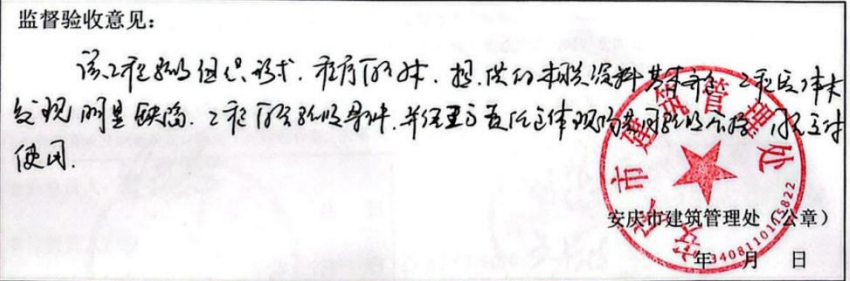 监督验收意见：
该工程验收组织形式、程序符合，提供的相关资料基本齐全，工程实体未
发现明显缺陷，工程符合验收条件，并经五方责任主体现场共同验收合格，同意交付
使用.
安庆市建筑管理处
安庆市建筑管理处（公章）
3408110115822
年 月 日